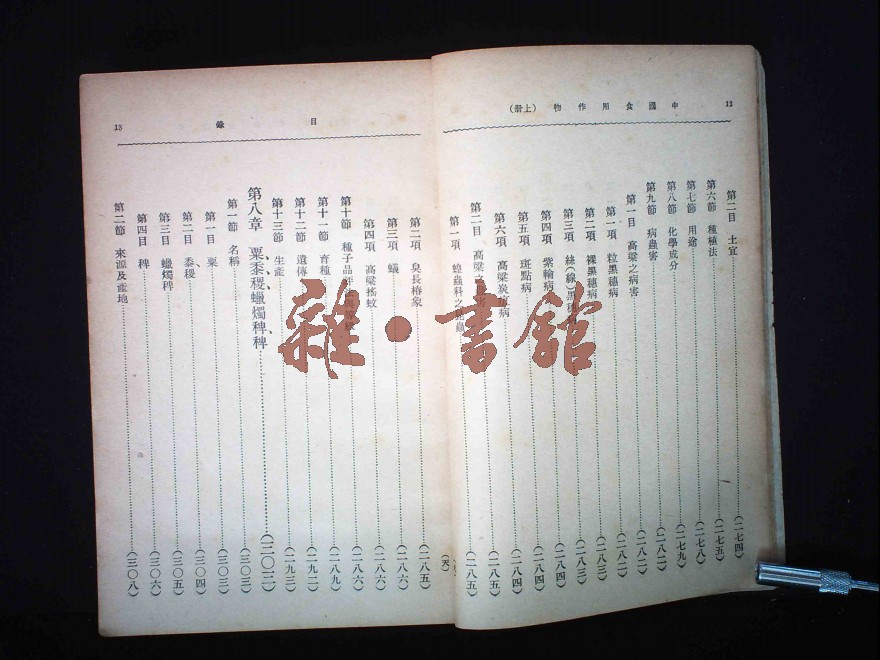 中國食用作物(上册) 12
第二目 土宜 (二七四)
第六節 種植法 (二七五)
第七節 用途 (二七八)
第八節 化學成分 (二七九)
第九節 病蟲害 (二八二)
第一目 高粱之病害 (二八二)
第一項 粒黑穗病 (二八二)
第二項 裸黑穗病 (二八三)
第三項 絲(線)黑穗病 (二八三)
第四項 紫輪病 (二八四)
第五項 斑點病 (二八四)
第六項 高粱炭疽病 (二八四)
第二目 高粱之蟲害 (二八五)
第一項 蝗蟲科之 (二八五)
目錄 13
第二項 臭長椿象 (二八五)
第三項 蟻 (二八六)
第四項 高粱搖蚊 (二八六)
第十節 種子品評 (二八六)
第十一節 育種 (二八九)
第十二節 遺傳 (二九二)
第十三節 生產 (二九三)
第八章 粟、黍、稷、蠟燭稗、稗 (三〇二)
第一節 名稱 (三〇三)
第一目 粟 (三〇三)
第二目 黍、稷 (三〇四)
第三目 蠟燭稗 (三〇五)
第四目 稗 (三〇六)
第二節 來源及產地 (三〇八)
雜·書館